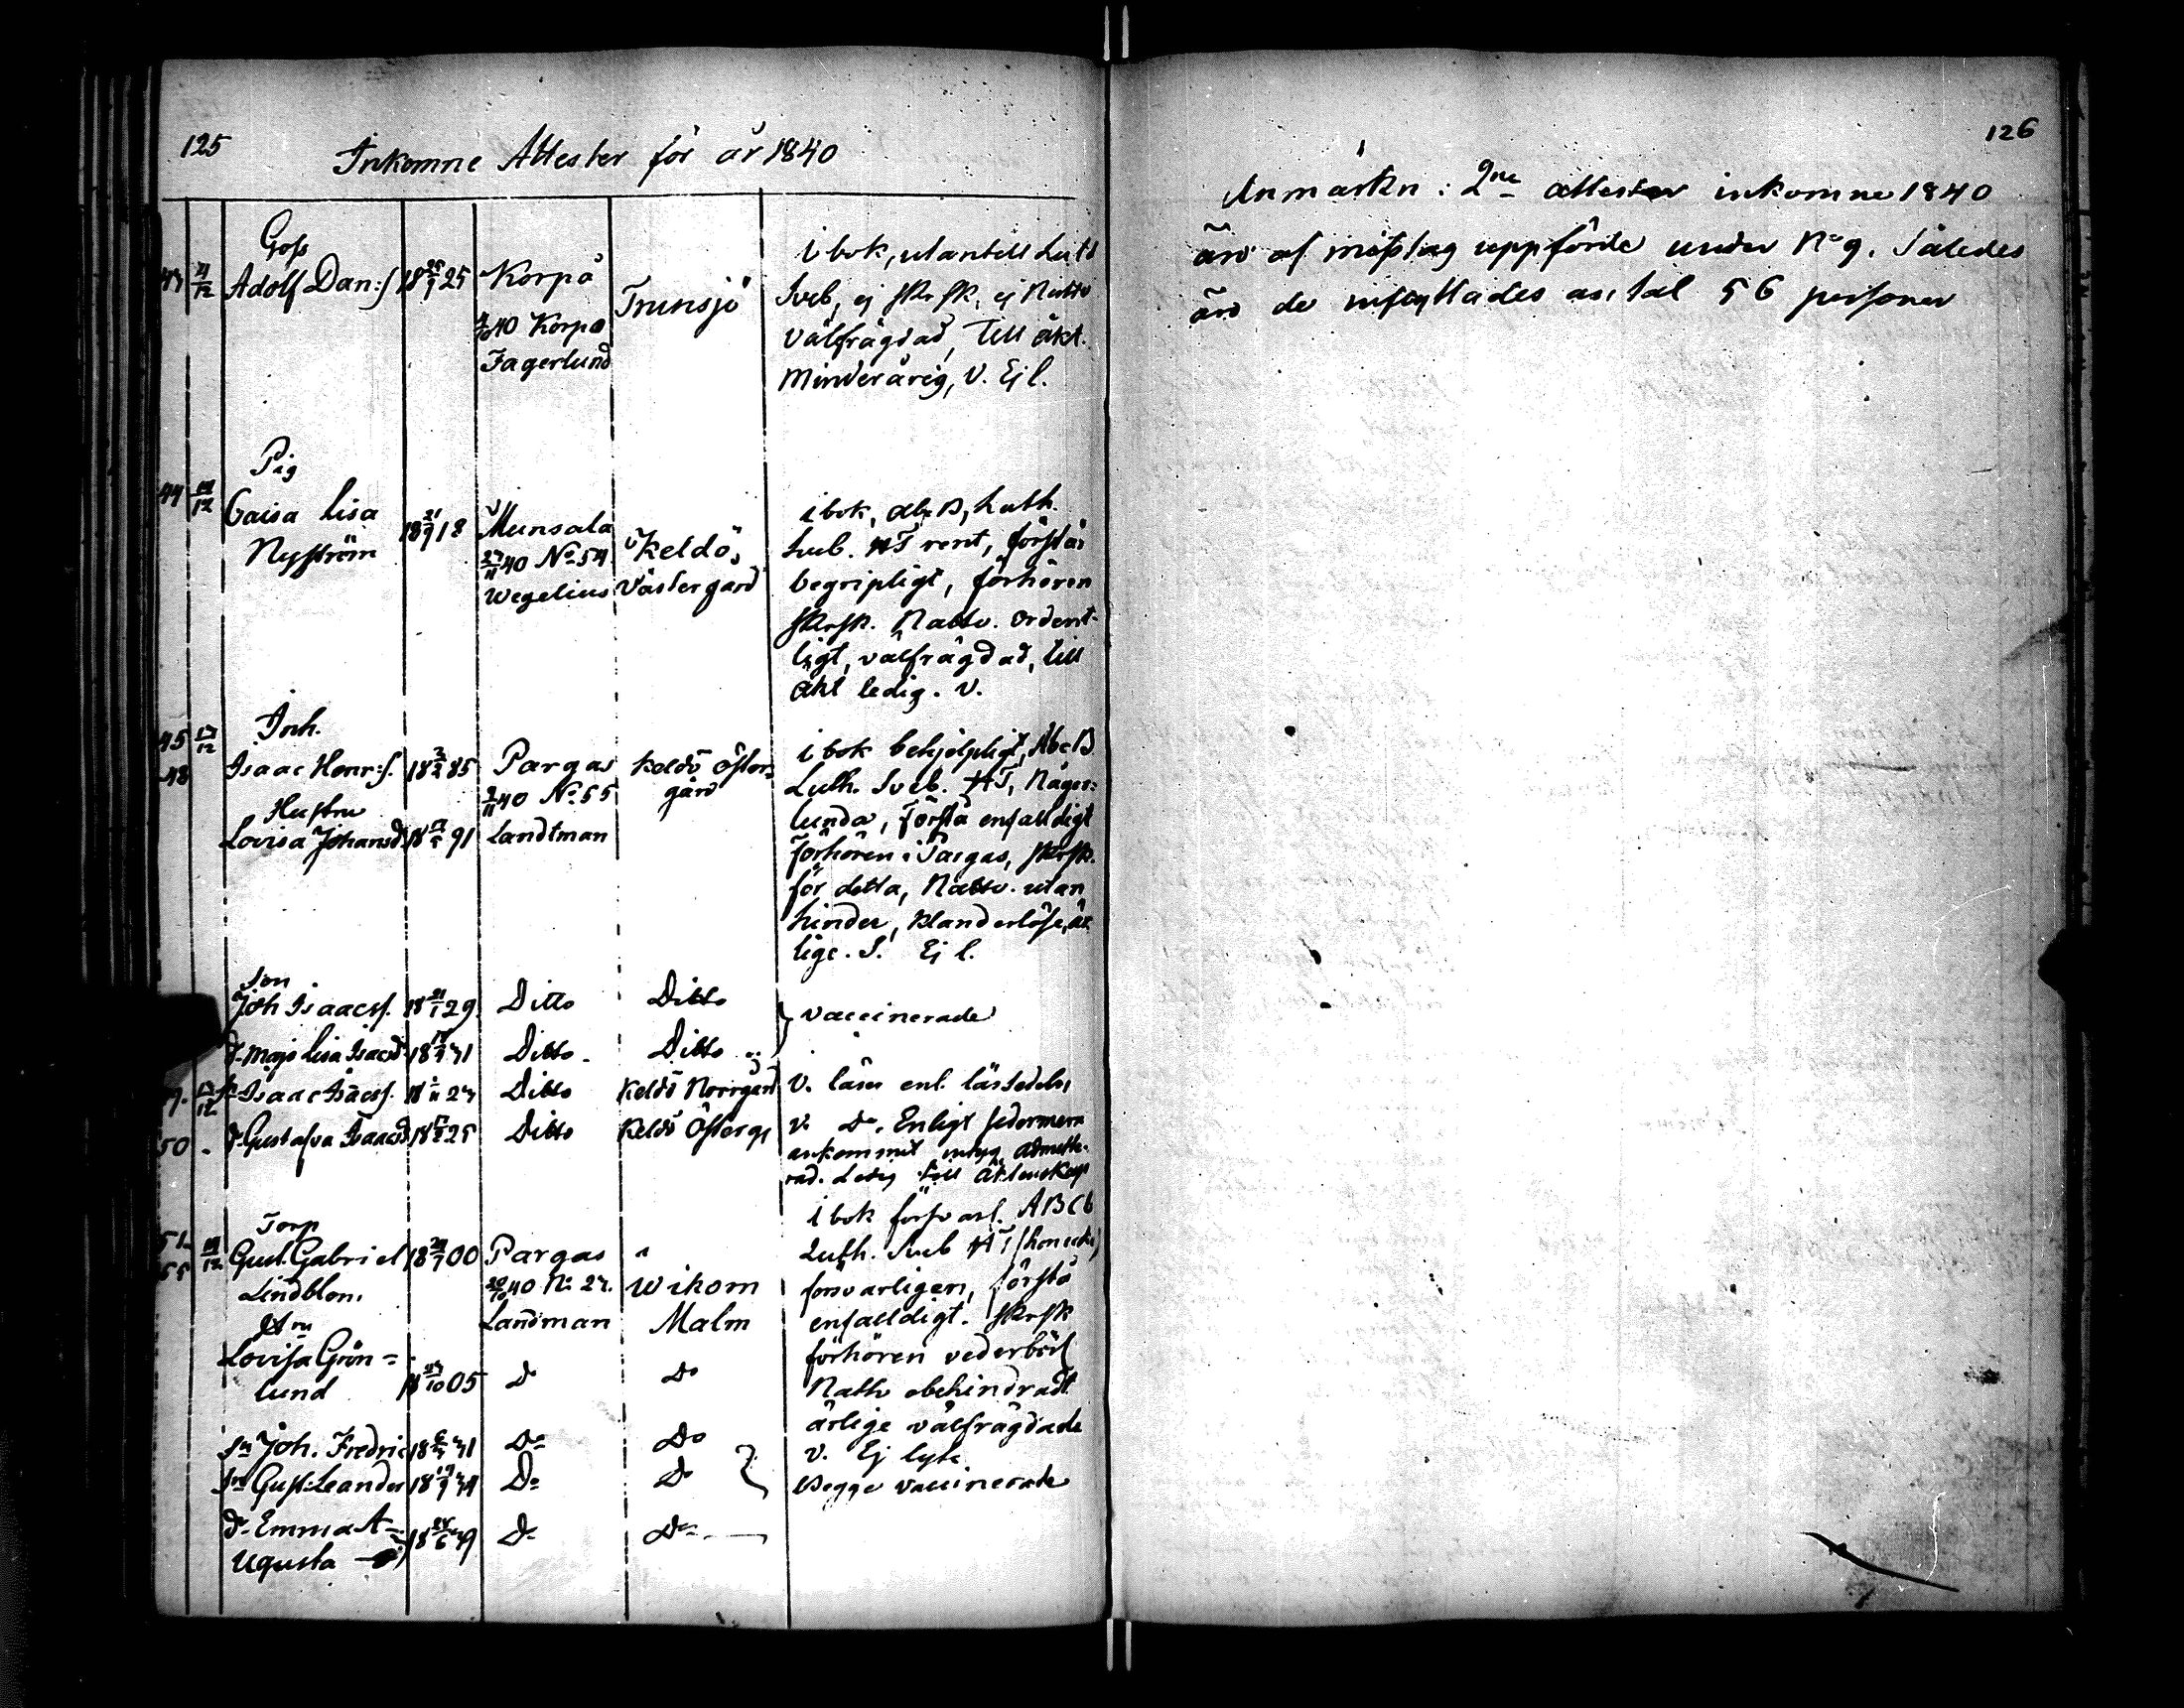 125
Inkomne Attester för år 1840
Goss
43 4/12 Adolf Dan:s 18 25/9 25 Korpo
4/10 40 Korpo
Fagerlund
Trunsjö
i bok, utantill Luth
Sveb, ej skrsk, ej Nattv
välfrägdad, till äkt.
Minderårig, V. Ej l.
Pig
44 /12 Caisa Lisa
Nyström
18 21/9 18 Munsala
27/11 40 No 54
Wegelius
Keldö,
Västergård
i bok, Abc B, Luth.
Sveb. HT rent, förstår
begripligt, förhören
skrsk. Nattv. ordent-
ligt, välfrägdad, till
äkt ledig. V.
45 17/12 Inh.
48 Isaac Henr:s. 18 2/2 85 Pargas
2/11 40 No 55
Landtman
Keldö Öster=
gård
Hustru
Lovisa Johansd. 18 91
i bok behjelpligt, Abc B
Luth. Sveb. HT, Någor=
lunda, Förstå enfalldigt
Förhören i Pargas, skrsk.
för detta, Nattv. utan
hinder, klanderlöse, är
lige. S. Ej l.
Son
Joh Isaacss. 18 21/1 29. Ditto Ditto } vaccinerade
d. Maja Lisa Isacsd 18 31 Ditto Ditto
49. 17/12 Isaac Isacss. 18 /11 23 Ditto Keldö Norrgård V. läser enl. läs sedeln,
50 - d. Gustafva Isaacsd 18 25 Ditto Keldö Österg, V. Do. Enligt sedermera
ankommit intyg admitte-
rad. Ledig till äktenskap
Torp
51- /12 Gust. Gabriel 18 29/7 00 Pargas
55 Lindblom.
20/10 40 No 23.
Landman
Wikom
Malm
i bok försvarl. ABCb
Luth. Sveb HT (hon icke)
försvarligen, förstå
enfalldigt. Skrsk
förhören vederbörl
Nattv obehindradt
ärlige välfrägdade
V. Ej lyte
Hru
Lovisa Grön=
lund 18 /10 05 Do Do
Sn Joh. Fredric 18 31 Do Do
Sn Gust: Leander 18 /9 34 Do Do } Begge vaccinerade
d. Emma A=
ugusta 18 24/6 39 Do Do
126
Anmärkn: 2ne attester inkomne 1840
äro af misstag uppförde under No 9. Således
äro de inflyttades antal 56 personer